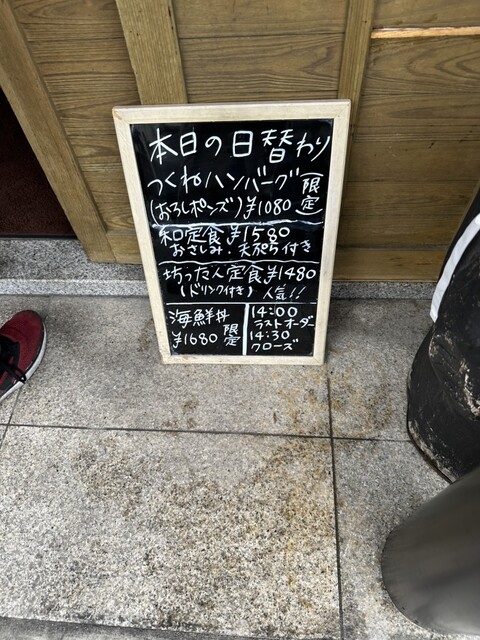 本日の日替わり
つくねハンバーグ 限定
(おろしポンズ) ¥1080
和定食 ¥1580
おさしみ・天ぷら付き
坊っちゃん定食 ¥1480
(ドリンク付き) 人気!!
海鮮丼 限定
¥1680
14:00
ラストオーダー
14:30
クローズ